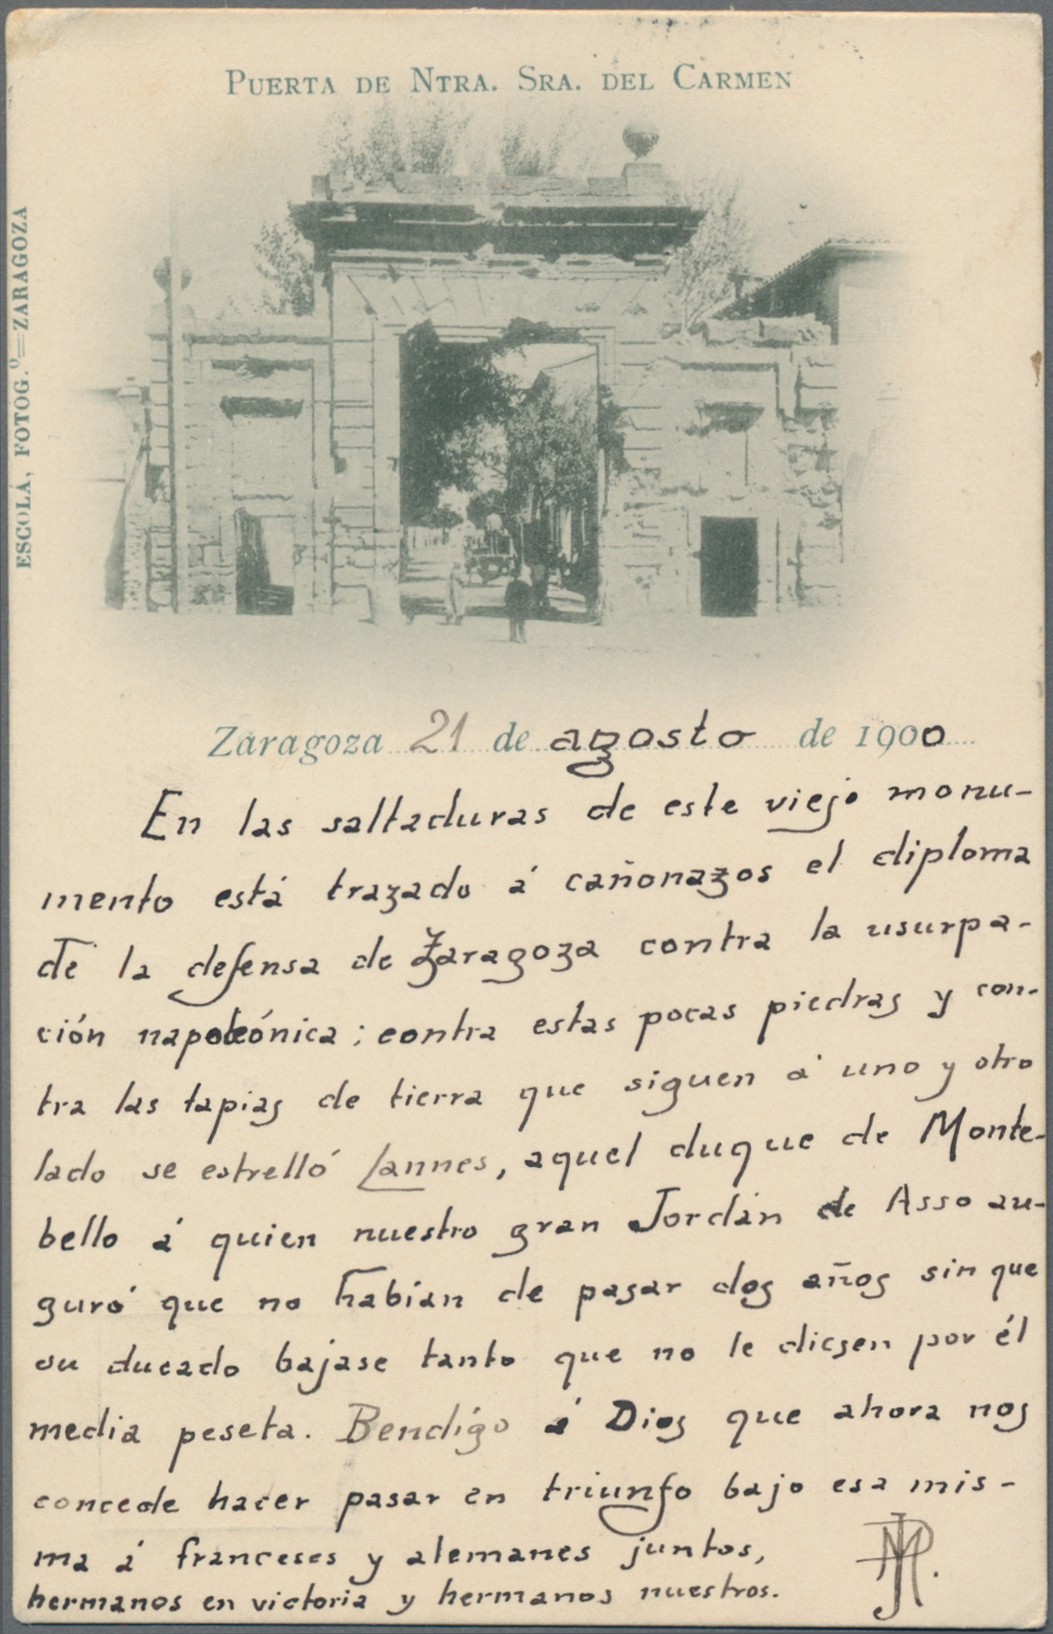 PUERTA DE NTRA. SRA. DEL CARMEN
ESCOLÁ, FOTOG.º=ZARAGOZA
Zaragoza 21 de agosto de 1900
En las saltaduras de este viejo monu-
mento está trazado á cañonazos el diploma
de la defensa de Zaragoza contra la usurpa-
ción napoleónica; contra estas pocas piedras y con-
tra las tapias de tierra que siguen á uno y otro
lado se estrelló Lannes, aquel duque de Monte-
bello á quien nuestro gran Jordán de Asso au-
guró que no habían de pasar dos años sin que
su ducado bajase tanto que no le diesen por él
media peseta. Bendigo á Dios que ahora nos
concede hacer pasar en triunfo bajo esa mis-
ma á franceses y alemanes juntos,
hermanos en victoria y hermanos nuestros.